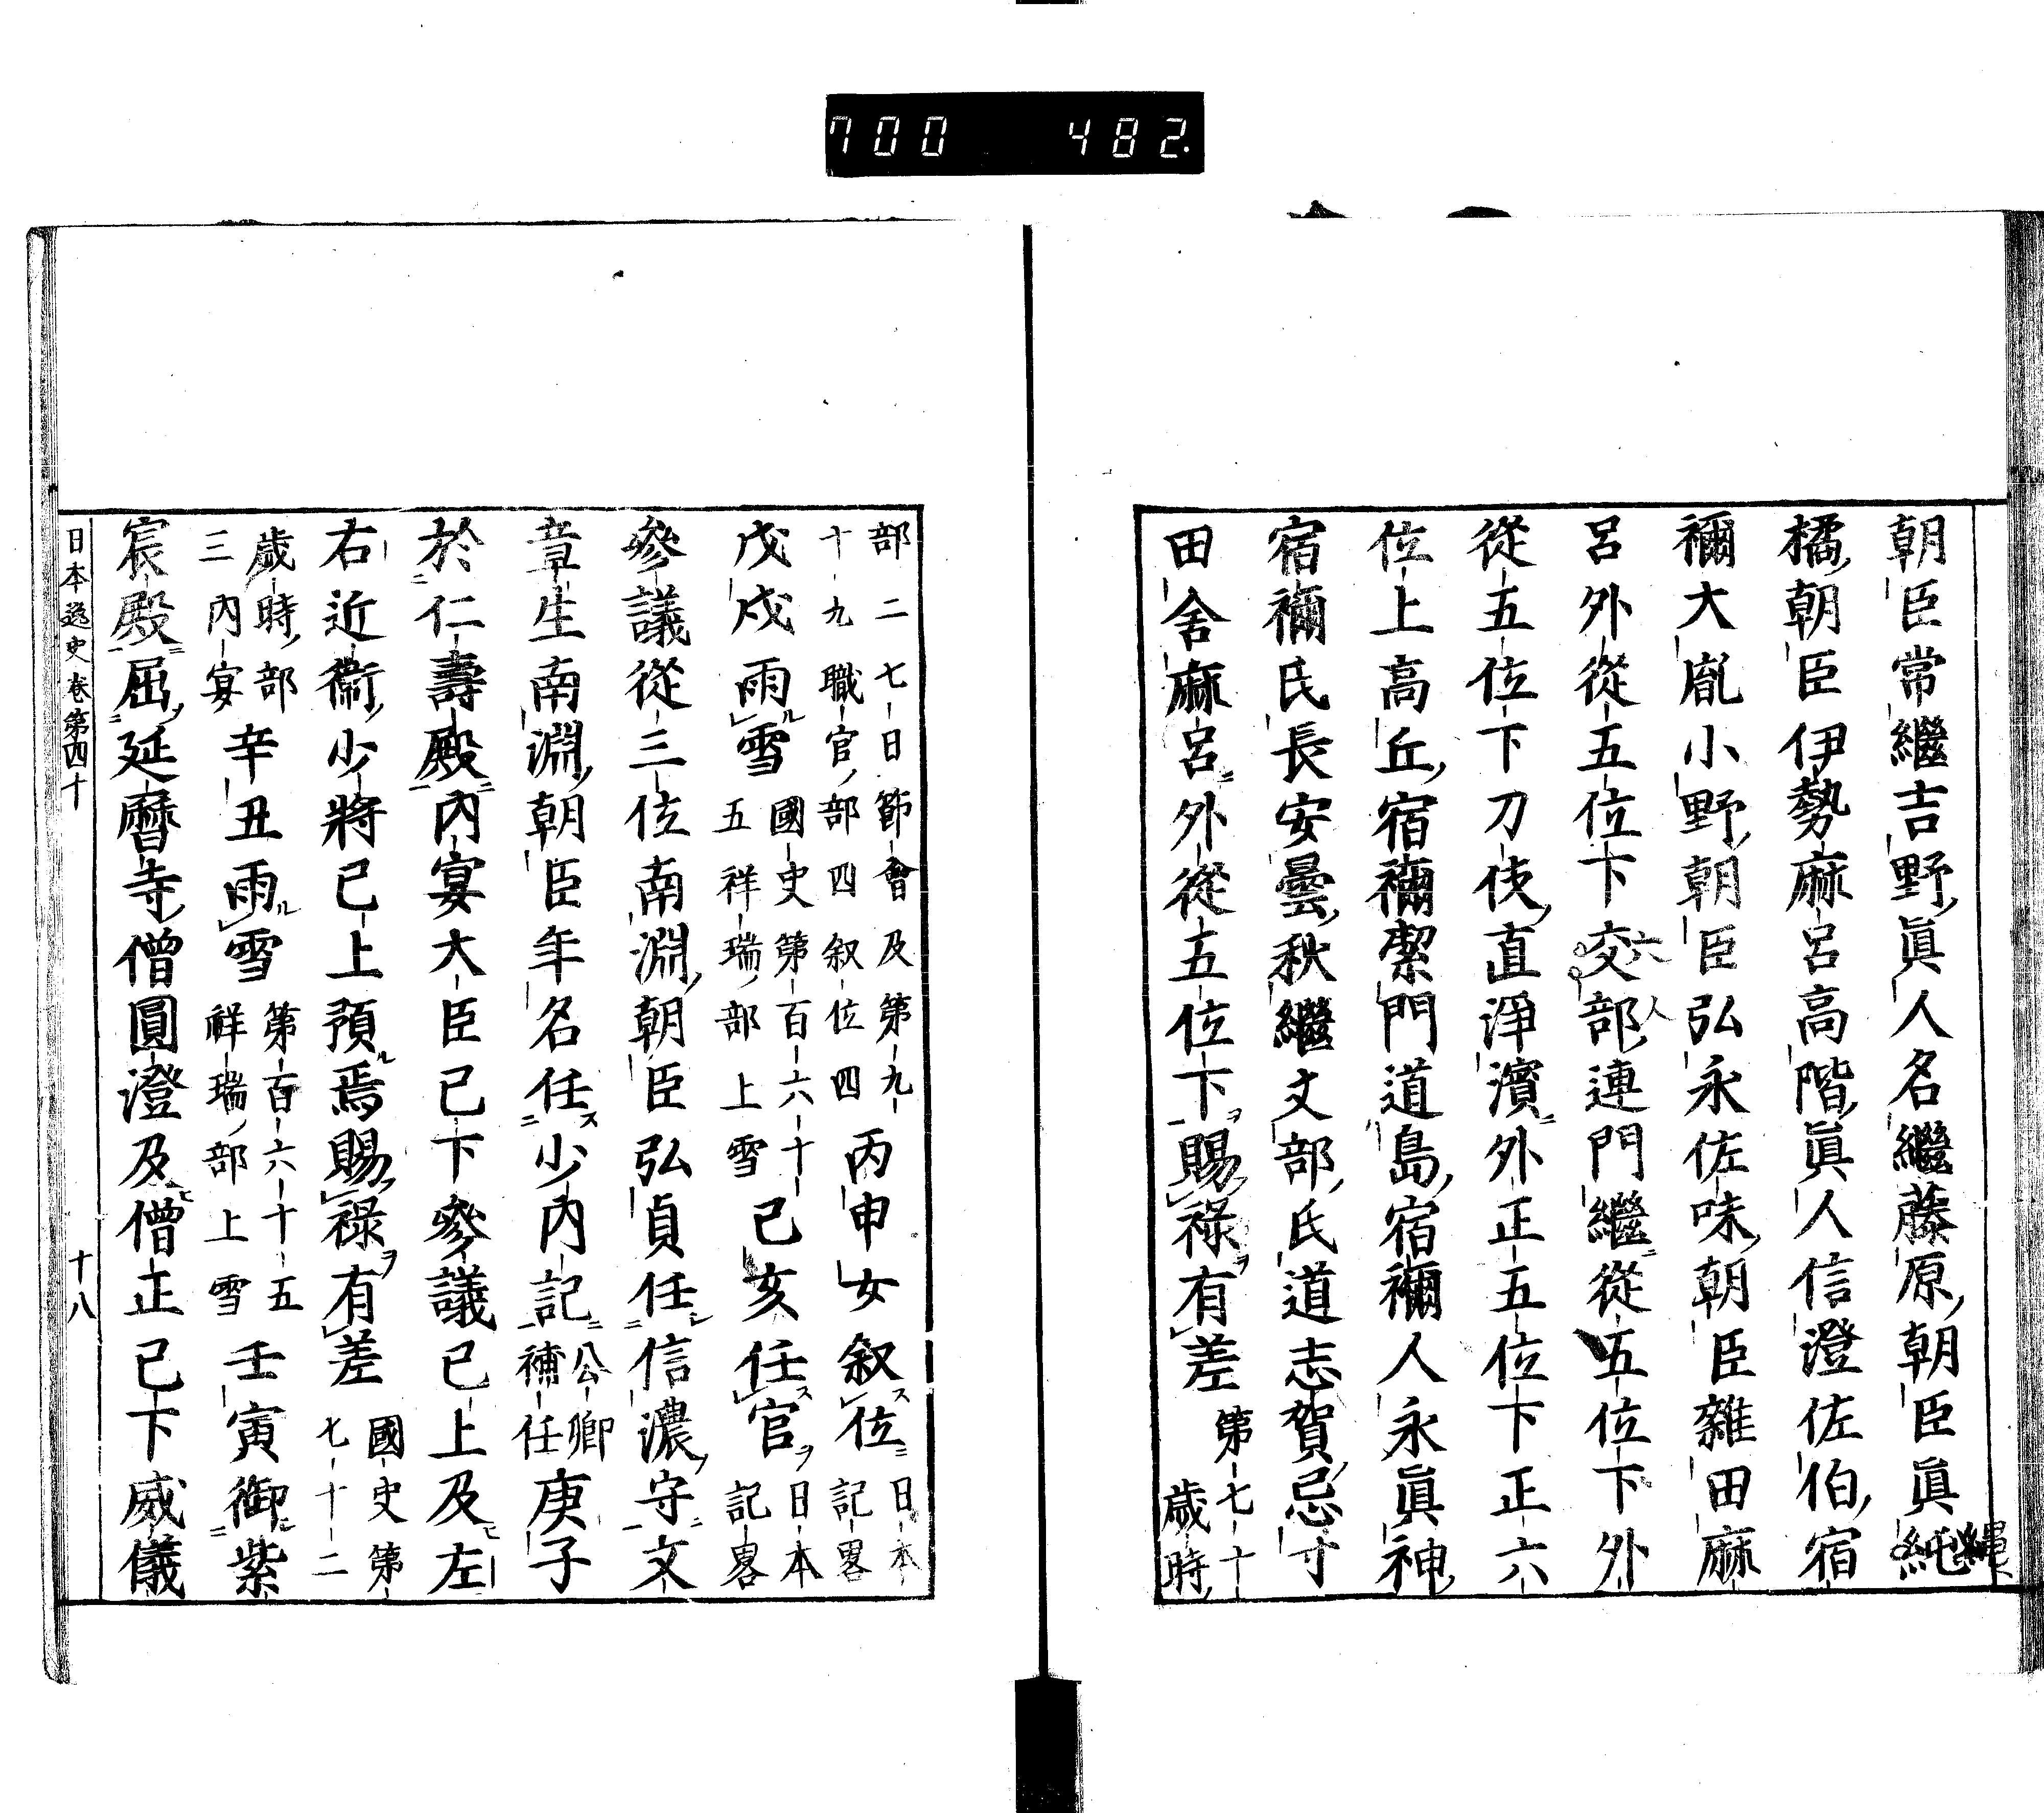 700 482
朝臣常繼吉野眞人名繼藤原朝臣眞純
橘朝臣伊勢麻呂高階眞人信澄佐伯宿
禰大胤小野朝臣弘永佐味朝臣雜田麻
呂外從五位下交部連門繼從五位下外
六人
從五位下刀伎直淨濱外正五位下正六
位上高丘宿禰潔門道島宿禰人永眞神
宿禰氏長安曇秋繼文部氏道志賀忌寸
田舍麻呂外從五位下賜祿有差
第七十
歲時
部二七日節會及第九
十九職官部四叙位四
丙申女叙位
日本
記畧
戊戌雨雪
國史第百六十
五祥瑞部上雪
己亥任官
日本
記畧
參議從三位南淵朝臣弘貞任信濃守文
章生南淵朝臣年名任少內記
公卿
補任
庚子
於仁壽殿內宴大臣已下參議已上及左
右近衞少將已上預焉賜祿有差
國史第
七十二
歲時部
三內宴
辛丑雨雪
第百六十五
祥瑞部上雪
壬寅御紫
宸殿屈延曆寺僧圓澄及僧正已下威儀
日本逸史卷第四十 十八